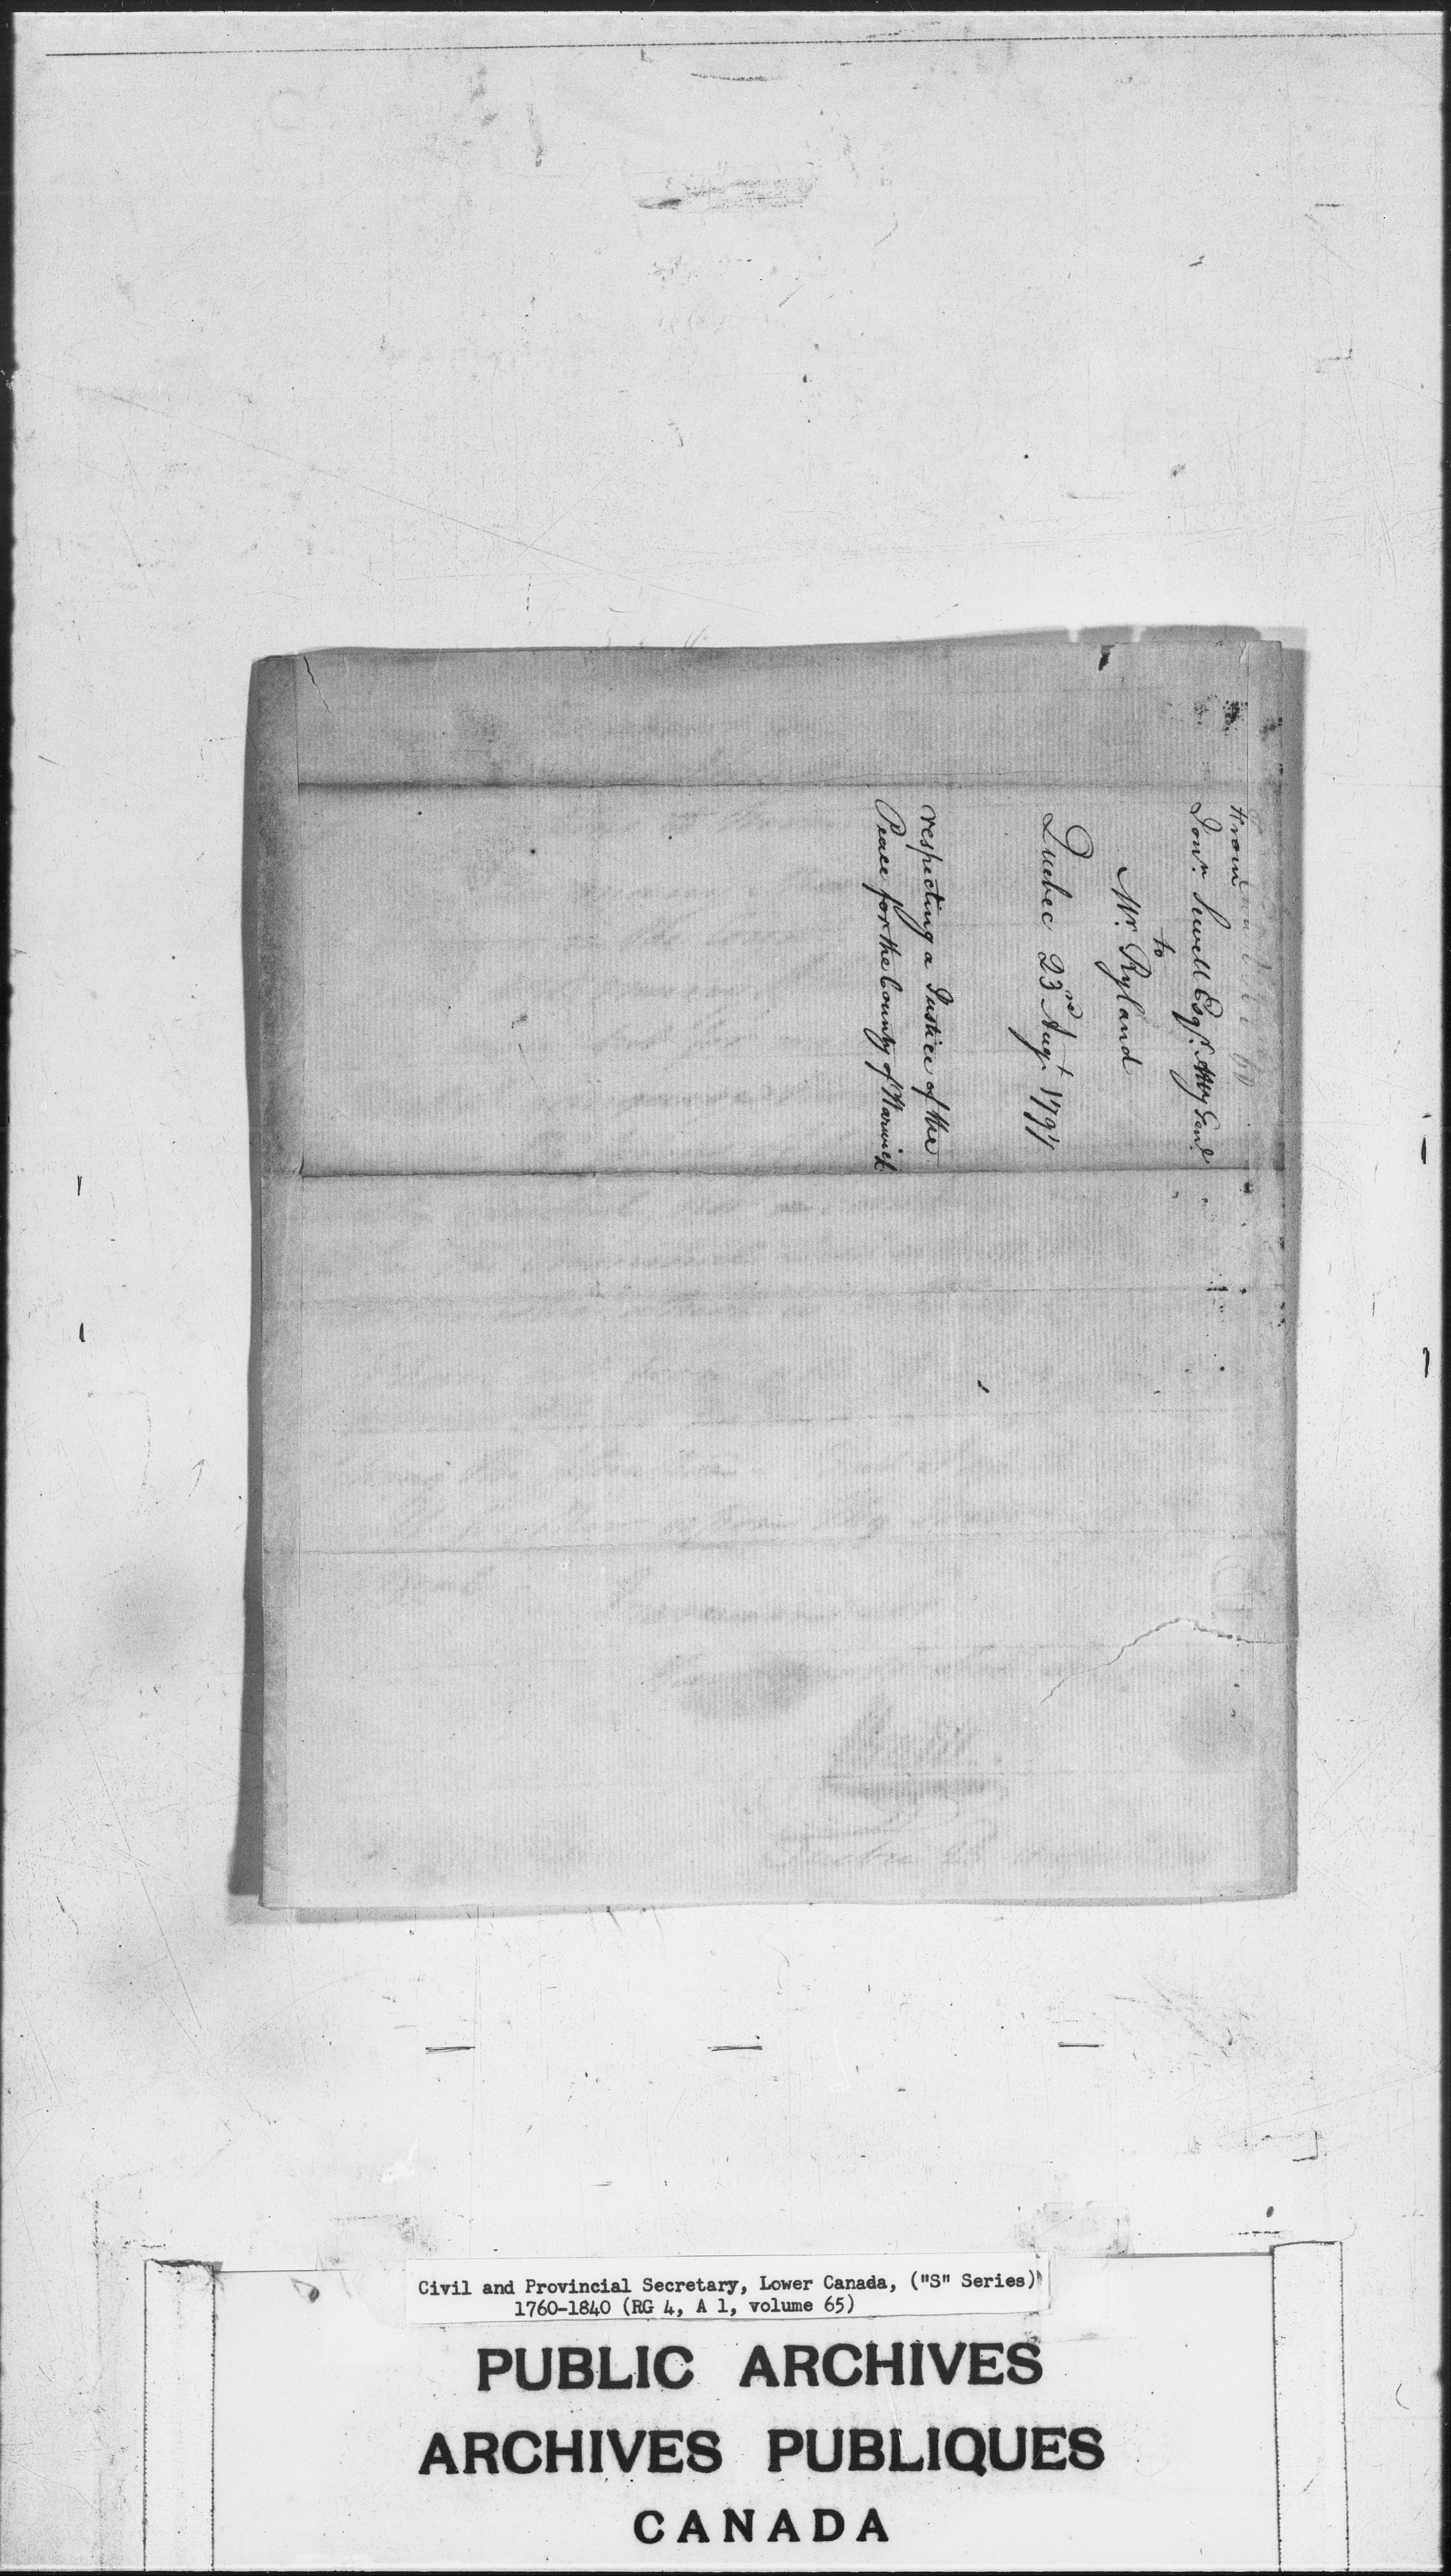 From
Jonn. Sewell Esqr. Atty Genl
to
Mr. Ryland
Quebec 23rd Augt. 1797
respecting a Justice of the
Peace for the County of Warwick
Civil and Provincial Secretary, Lower Canada, ("S" Series)
1760-1840 (RG 4, A 1, volume 65)
PUBLIC ARCHIVES
ARCHIVES PUBLIQUES
CANADA